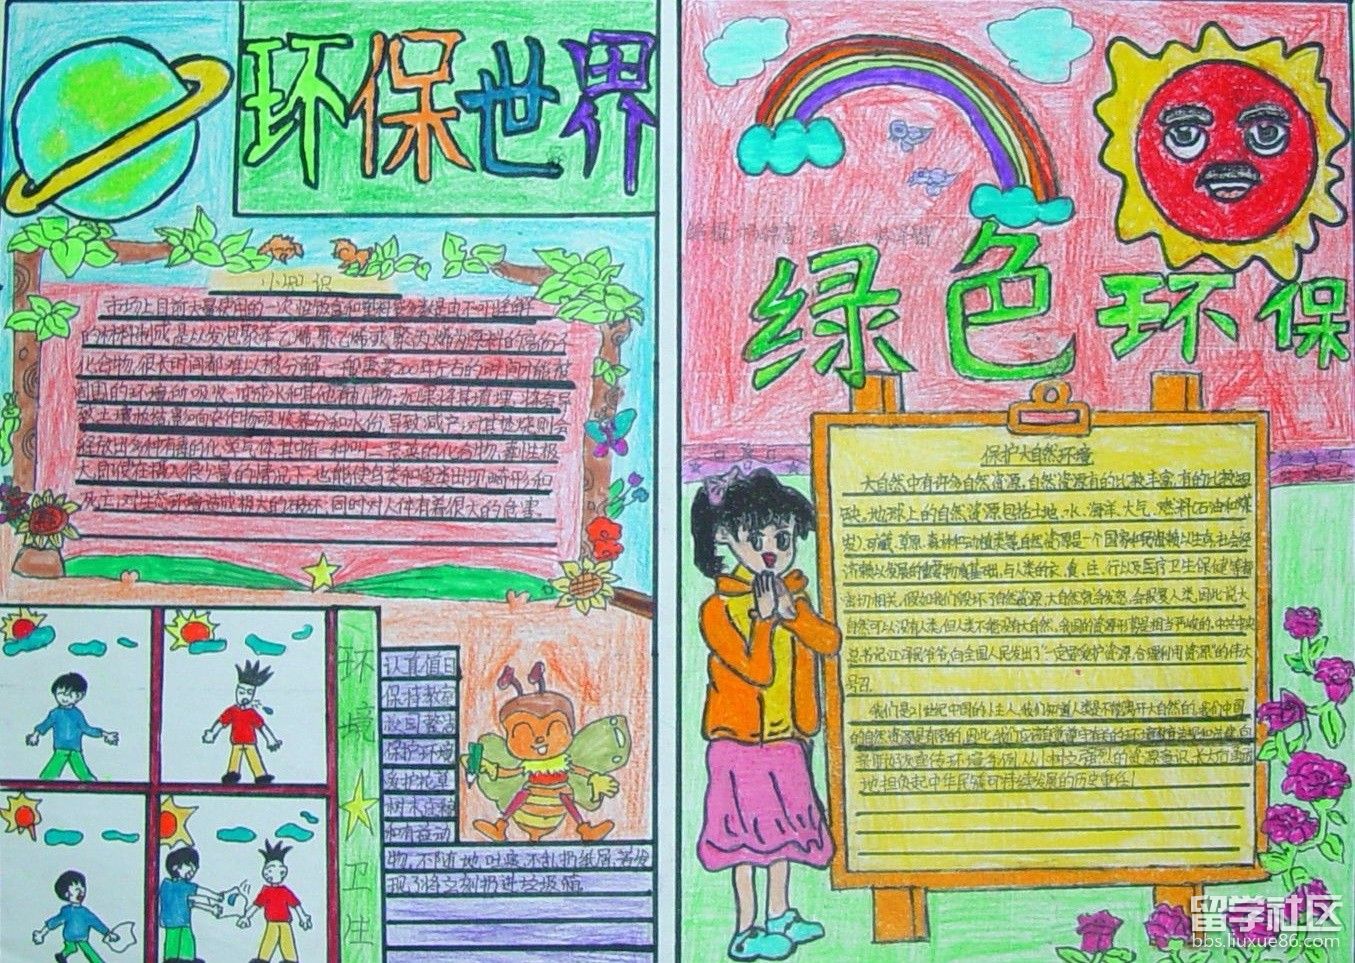 环保世界
小知识
市场上目前大量使用的一次性饭盒和塑料袋
的材料制成是以发泡聚苯乙烯、聚乙烯或聚丙烯为原料的高分子
化合物,很长时间都难以被分解,一般需要200年左右的时间才能被
周围的环境所吸收,变成水和其他有机物。如果将其填埋,将会导
致土壤板结,影响农作物吸收养分和水份,导致减产;对其焚烧则会
释放出多种有毒的化学气体,其中有一种叫二噁英的化合物,毒性极
大,即使在摄入很少量的情况下,也能使鸟类和鱼类出现畸形和
死亡,对生态环境造成极大的破坏,同时对人体有着很大的危害。
环境
卫生
认真值日
保持教室
校园整洁
保护环境
爱护花草
树木庄稼
和有益动
物,不随地吐痰,不乱扔纸屑,若发
现了将立刻扔进垃圾箱
绿色环保
保护大自然环境
大自然中有许多自然资源,自然资源有的比较丰富,有的比较短
缺。地球上的自然资源包括土地、水、海洋、大气、燃料(石油和煤
炭)、矿藏、草原、森林和动植类等。自然资源是一个国家和民族赖以生存、社会经
济赖以发展的重要物质基础,与人类的衣、食、住、行以及医疗卫生保健等都
密切相关。假如我们毁坏了自然资源,大自然就会发怒,会报复人类。因此说大
自然可以没有人类,但人类不能没有大自然。我国的资源形势是相当严峻的,中共中央
总书记江泽民爷爷,向全国人民发出了“一定要爱护资源,合理利用资源”的伟大
号召。
我们是21世纪中国的小主人,我们知道人类是不能离开大自然的,我们中国
的自然资源是有限的,因此,我们应
地担负起中华民族可持续发展的历史重任!
留学社区
bbs.liuxue86.com